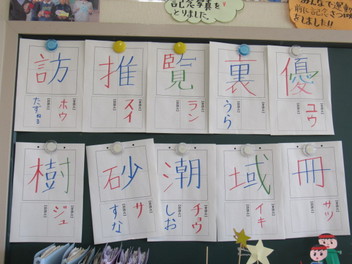 記念写真を
とりました。
訪
ホウ
たずねる
推
スイ
覧
ラン
裏
うら
優
ユウ
樹
ジュ
砂
サ
すな
潮
チョウ
しお
域
イキ
冊
サツ